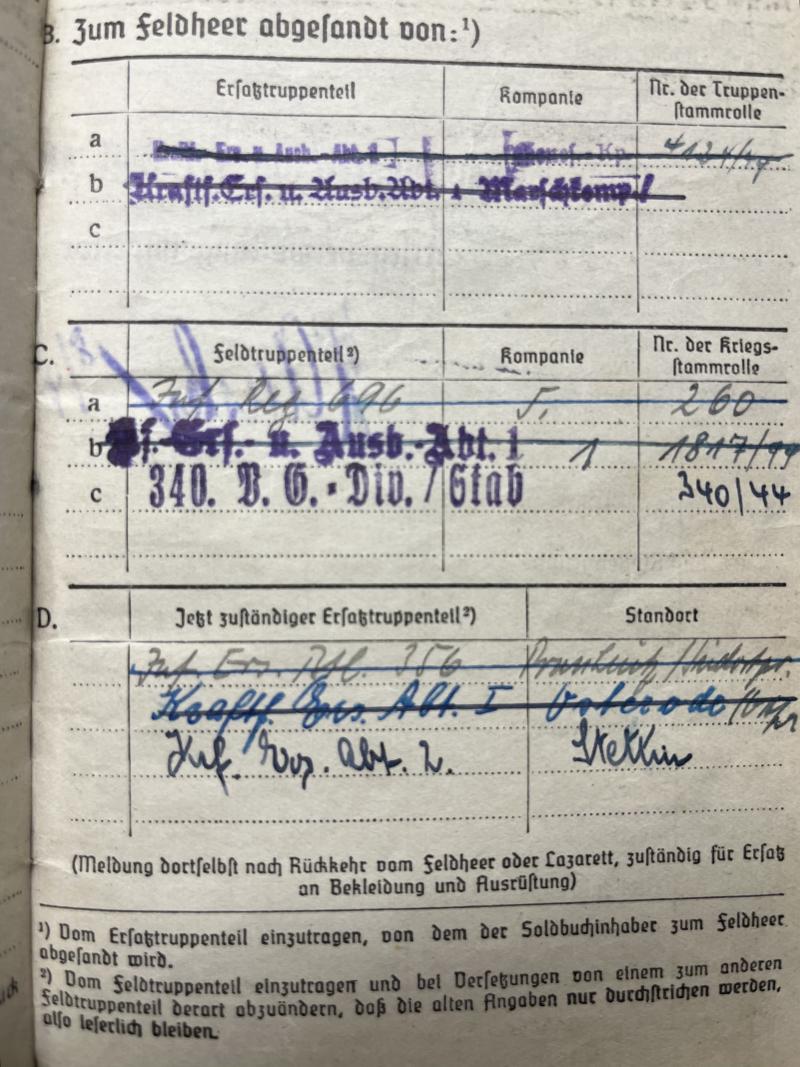 B. Zum Feldheer abgesandt von:¹)
Ersatztruppenteil Kompanie Nr. der Truppen-
stammrolle
a Ers. u. Ausb.-Abt. 1
b Kraftf. Ers. u. Ausb. Abt. 1 Marschkomp.
c
C. Feldtruppenteil²) Kompanie Nr. der Kriegs-
stammrolle
a Inf. Reg. 696 5. 260
b Kf. Ers.- u. Ausb.-Abt. 1 1 1817/44
c 340. V. G.-Div. / Stab 340/44
D. Jetzt zuständiger Ersatztruppenteil²) Standort
Inf. Ers. Btl. 356
Kraftf. Ers. Abt. I Osterode
Krf. Ers. Abt. 2. Stettin
(Meldung dortselbst nach Rückkehr vom Feldheer oder Lazarett, zuständig für Ersatz
an Bekleidung und Ausrüstung)
¹) Vom Ersatztruppenteil einzutragen, von dem der Soldbuchinhaber zum Feldheer
abgesandt wird.
²) Vom Feldtruppenteil einzutragen und bei Versetzungen von einem zum anderen
Feldtruppenteil derart abzuändern, daß die alten Angaben nur durchstrichen werden,
also leserlich bleiben.